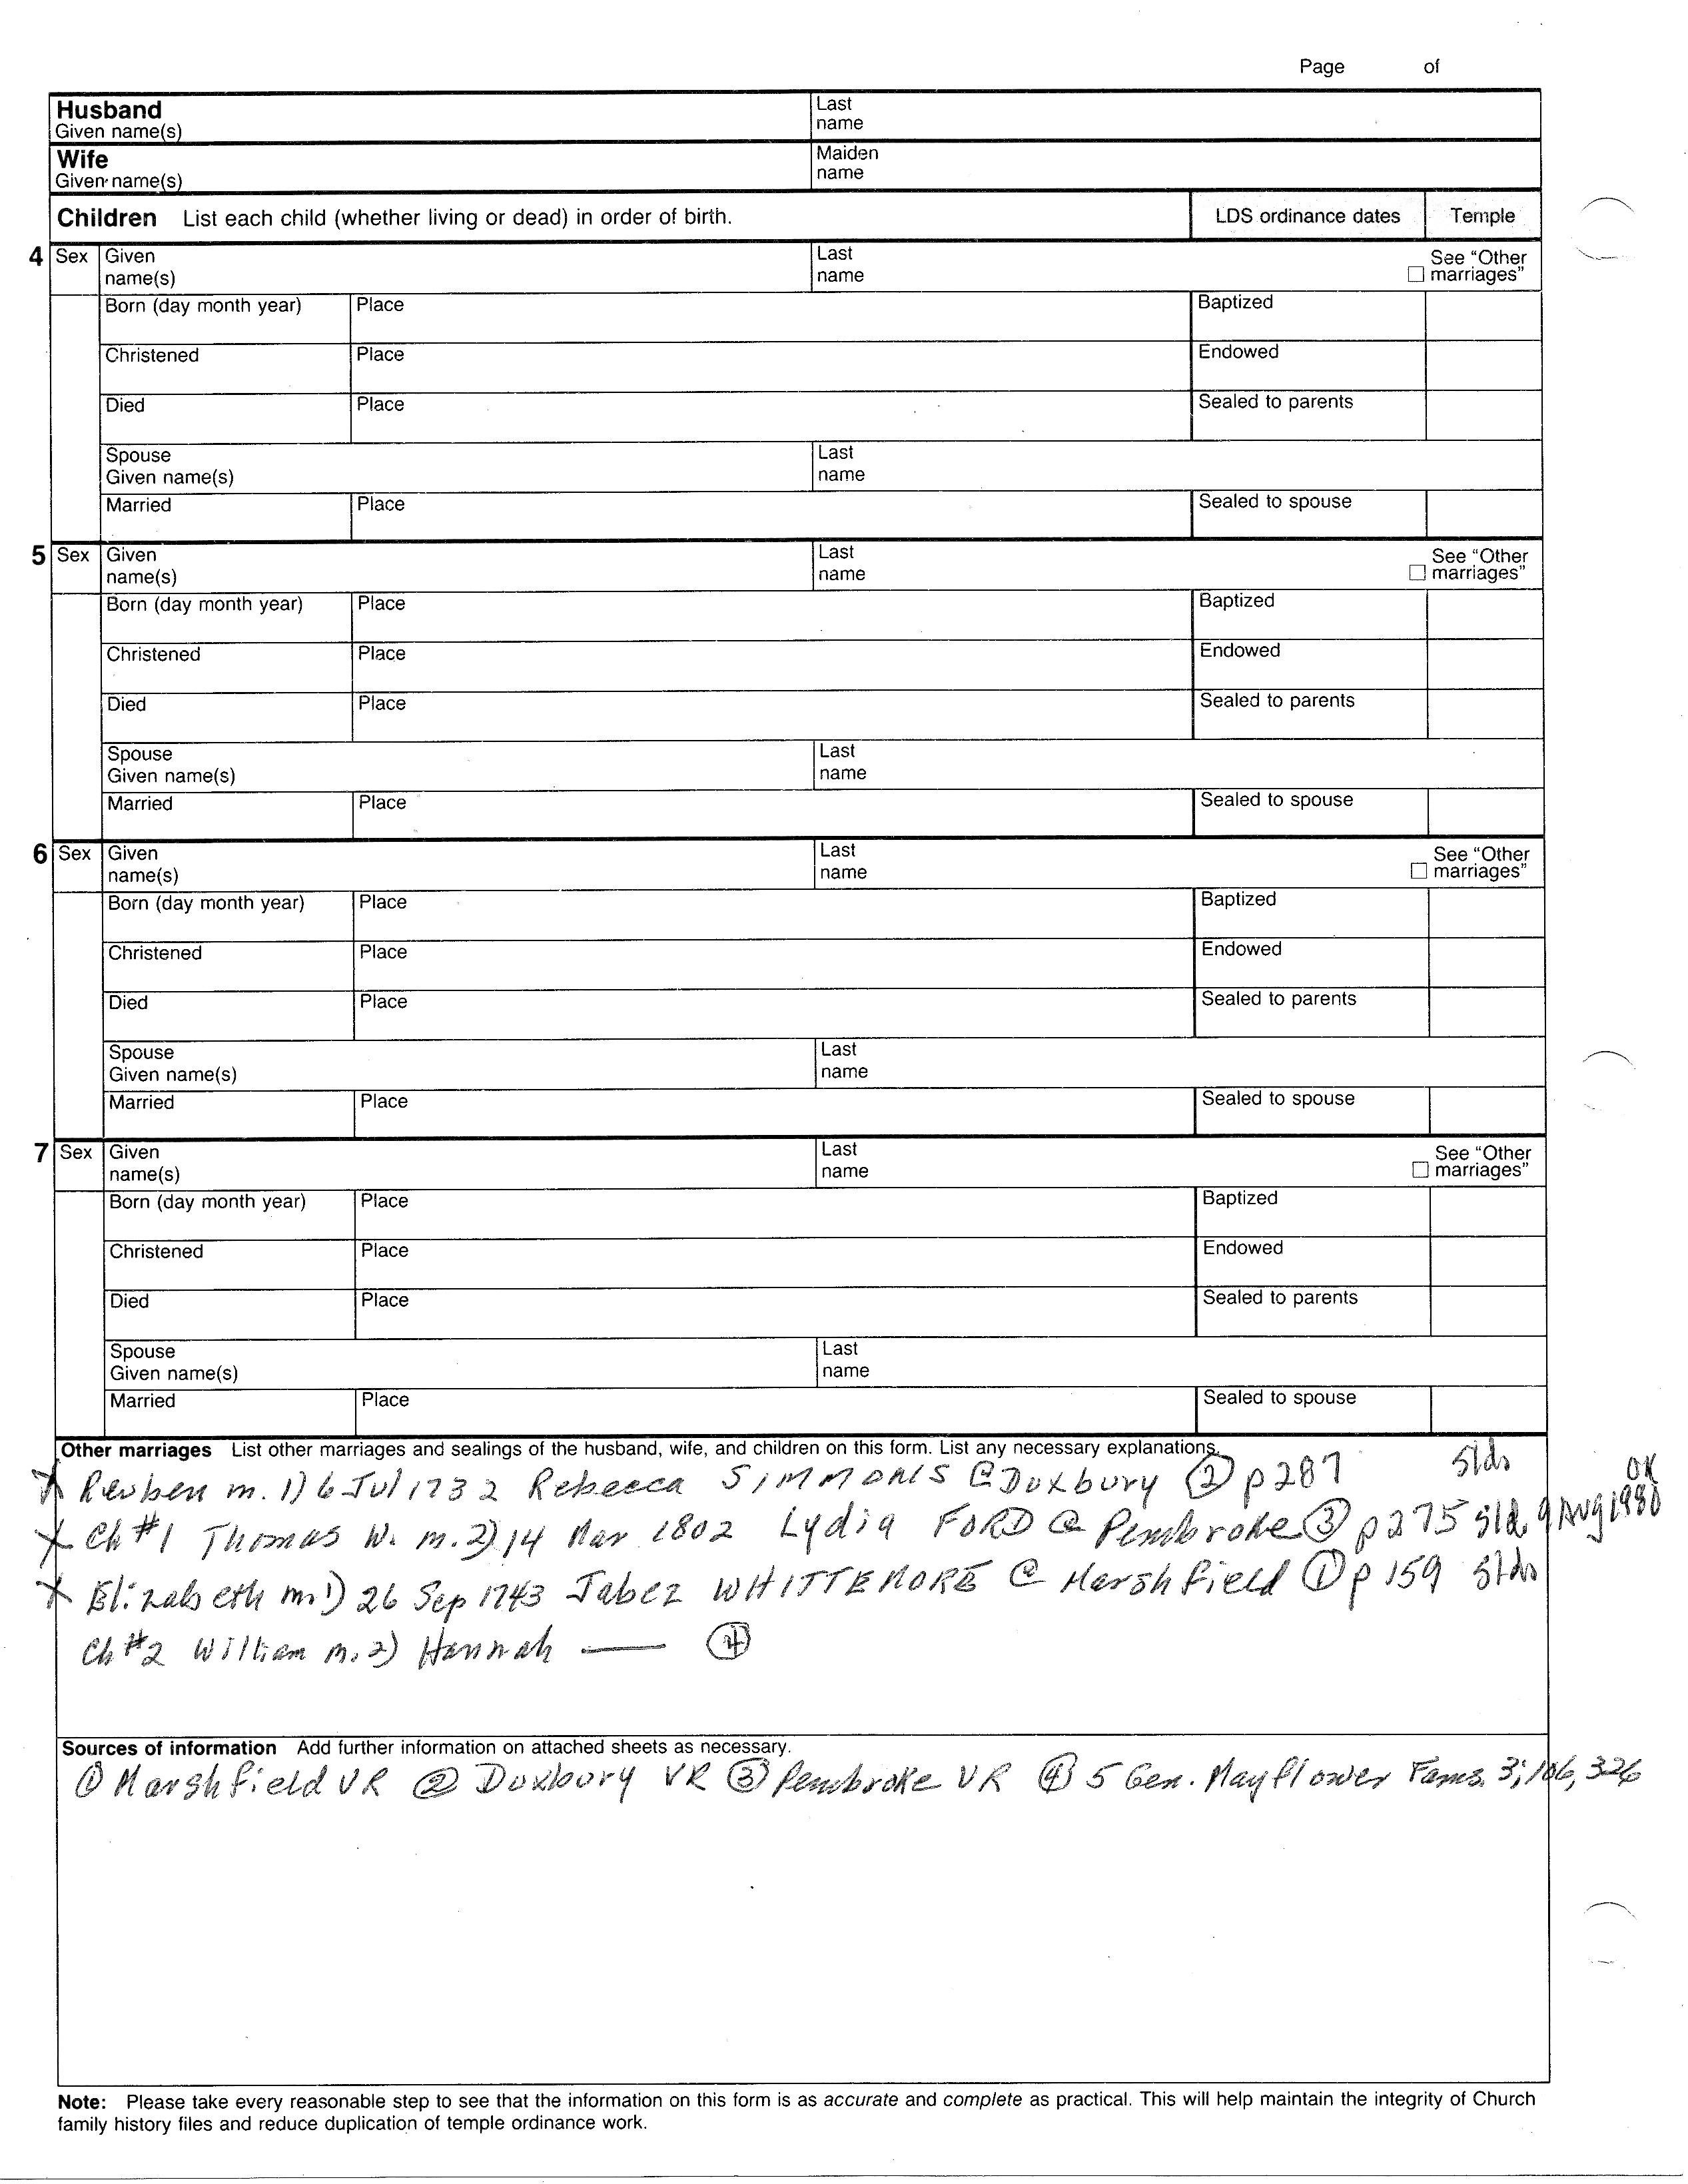 Page of
Husband
Given name(s)
Last name
Wife
Given name(s)
Maiden name
Children List each child (whether living or dead) in order of birth.
LDS ordinance dates
Temple
4 Sex
Given name(s)
Last name
☐ See “Other marriages”
Born (day month year)
Place
Baptized
Christened
Place
Endowed
Died
Place
Sealed to parents
Spouse
Given name(s)
Last name
Married
Place
Sealed to spouse
5 Sex
Given name(s)
Last name
☐ See “Other marriages”
Born (day month year)
Place
Baptized
Christened
Place
Endowed
Died
Place
Sealed to parents
Spouse
Given name(s)
Last name
Married
Place
Sealed to spouse
6 Sex
Given name(s)
Last name
☐ See “Other marriages”
Born (day month year)
Place
Baptized
Christened
Place
Endowed
Died
Place
Sealed to parents
Spouse
Given name(s)
Last name
Married
Place
Sealed to spouse
7 Sex
Given name(s)
Last name
☐ See “Other marriages”
Born (day month year)
Place
Baptized
Christened
Place
Endowed
Died
Place
Sealed to parents
Spouse
Given name(s)
Last name
Married
Place
Sealed to spouse
Other marriages List other marriages and sealings of the husband, wife, and children on this form. List any necessary explanations.
X Reuben m. 1) 6 Jul 1732 Rebecca SIMMONS @ Duxbury ② p 287 slds OK
X Ch #1 Thomas W. m. 2) 14 Mar 1802 Lydia FORD @ Pembroke ③ p 275 sld. 9 Aug 1980
X Elizabeth m 1) 26 Sep 1743 Jabez WHITTEMORE @ Marshfield ① p 159 slds
Ch #2 William m. 2) Hannah — ④
Sources of information Add further information on attached sheets as necessary.
① Marshfield VR ② Duxbury VR ③ Pembroke VR ④ 5 Gen. Mayflower Fams. 3; 106, 326
Note: Please take every reasonable step to see that the information on this form is as accurate and complete as practical. This will help maintain the integrity of Church
family history files and reduce duplication of temple ordinance work.